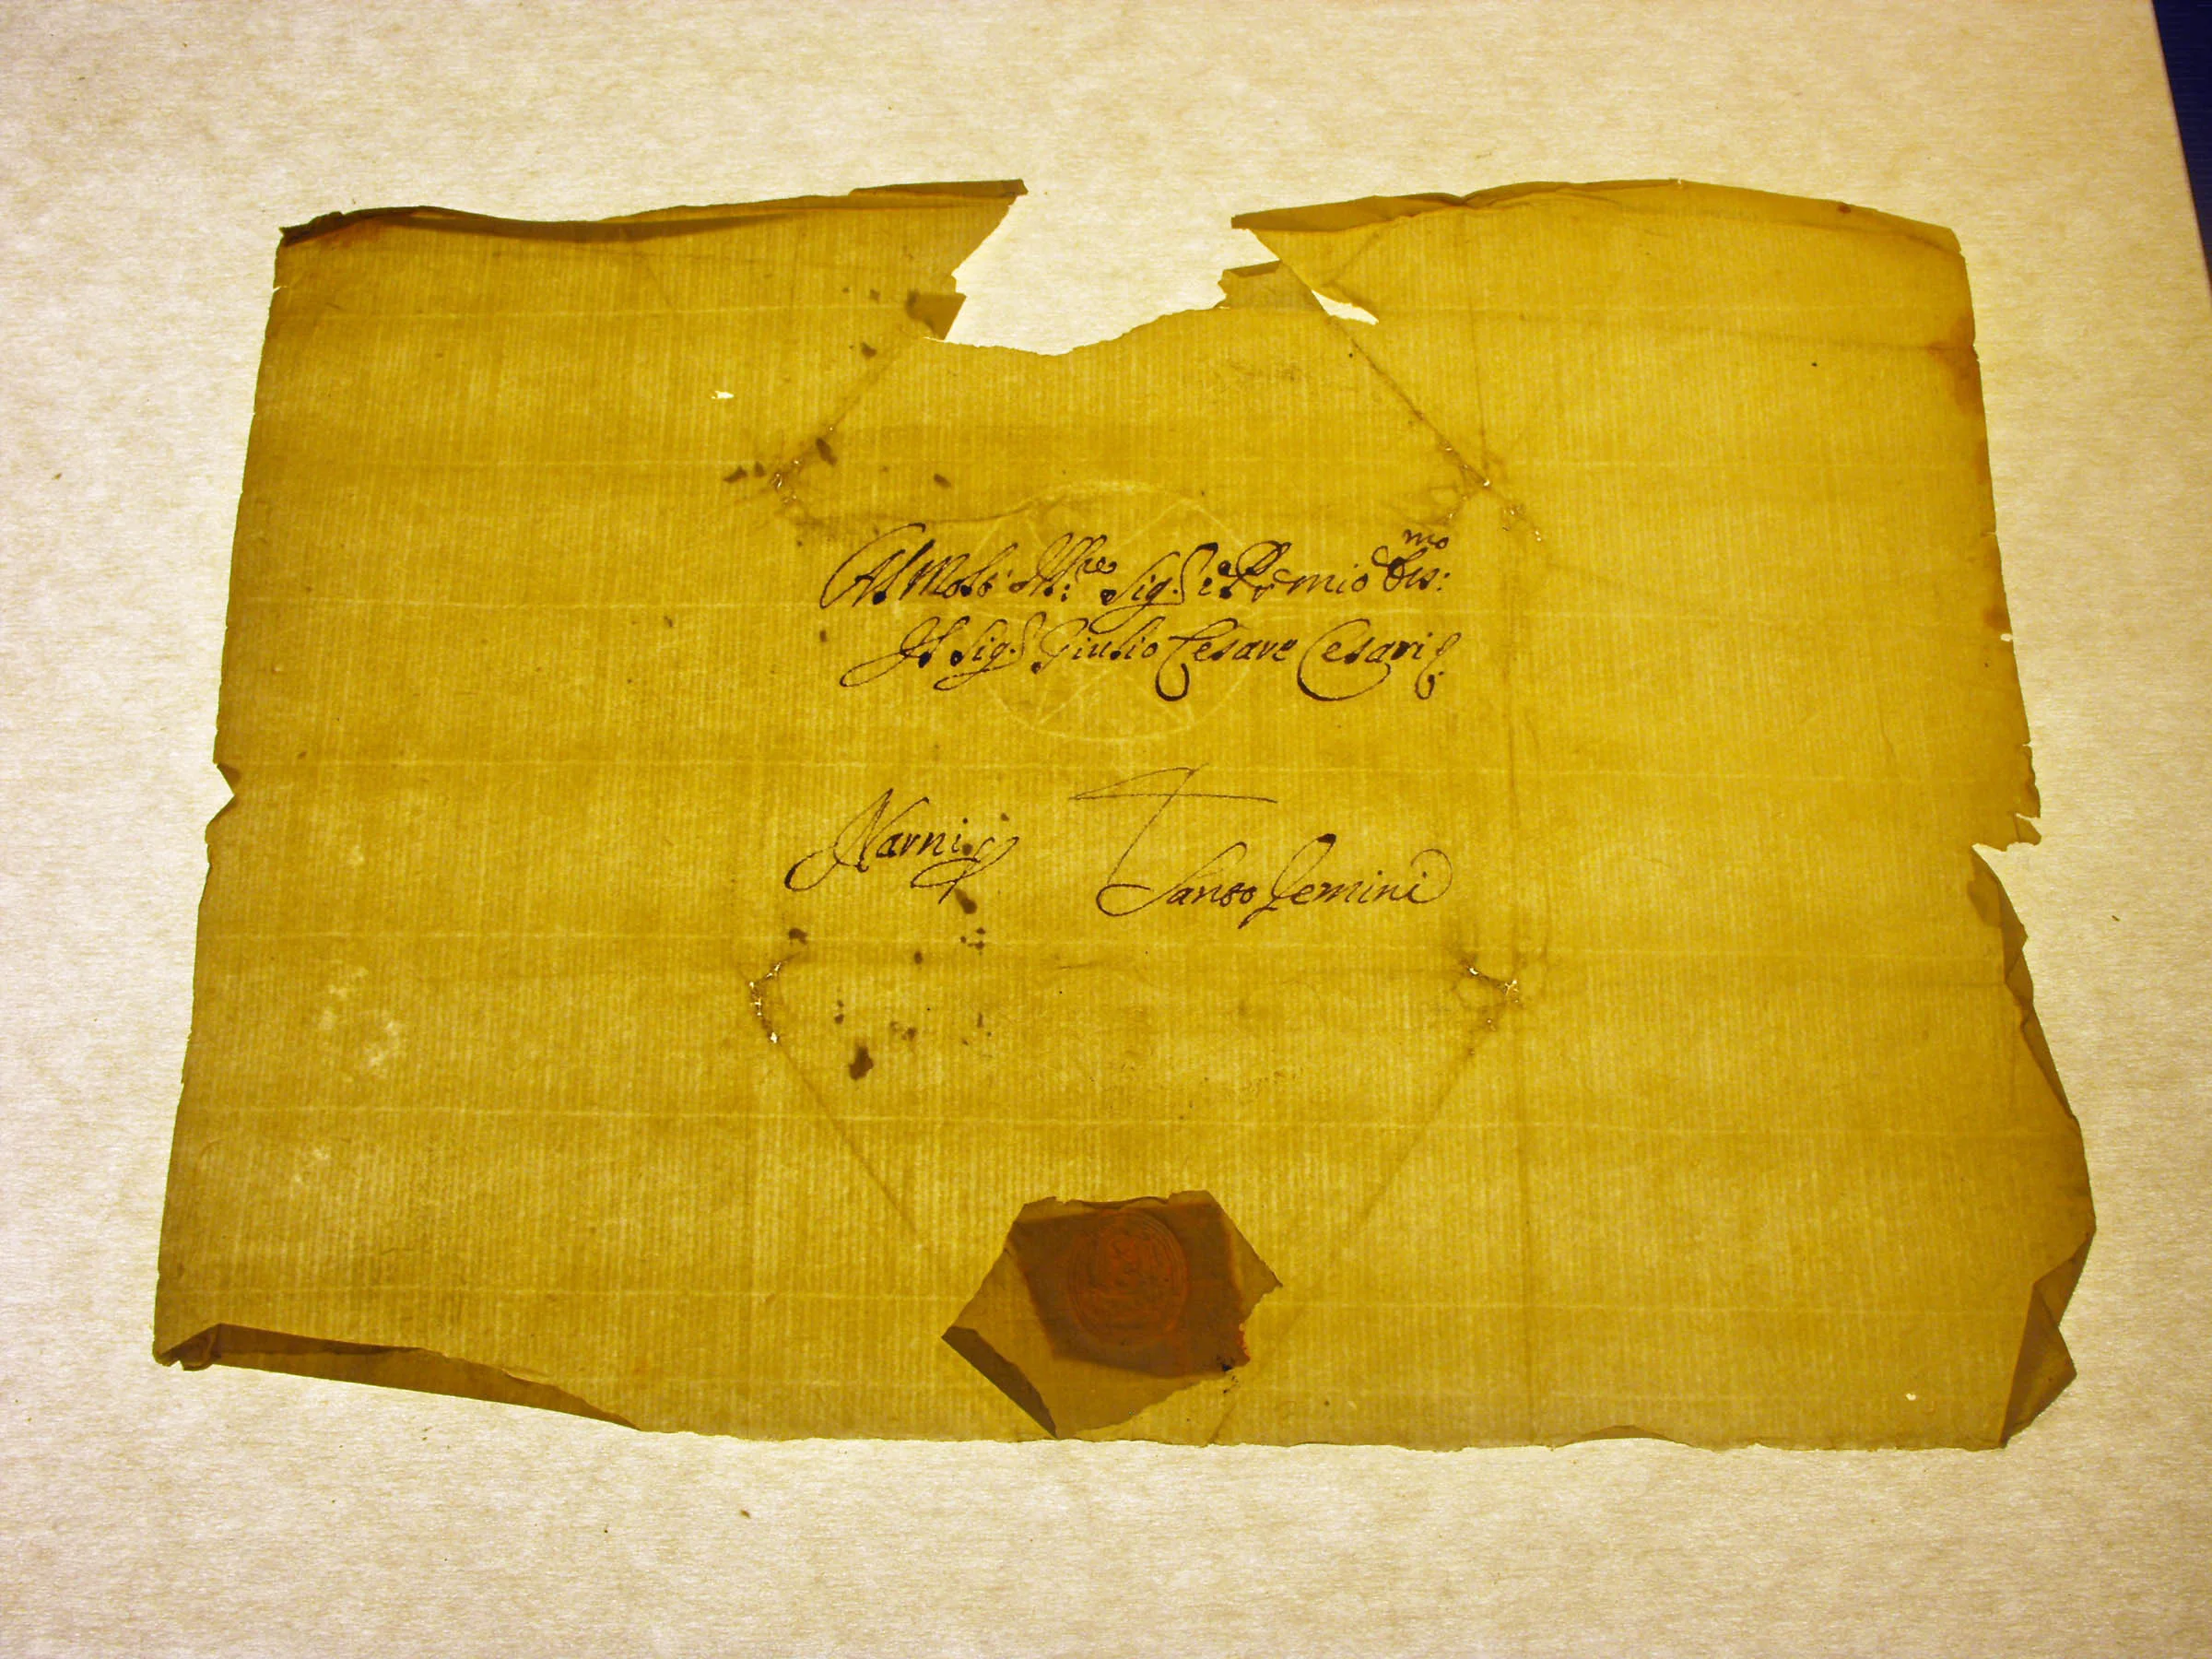 Al Molt' Ill:re Sig.r e Pr~ne mio Oss:mo
Il Sig.r Giulio Cesare Cesari
Narni Santo Gemini